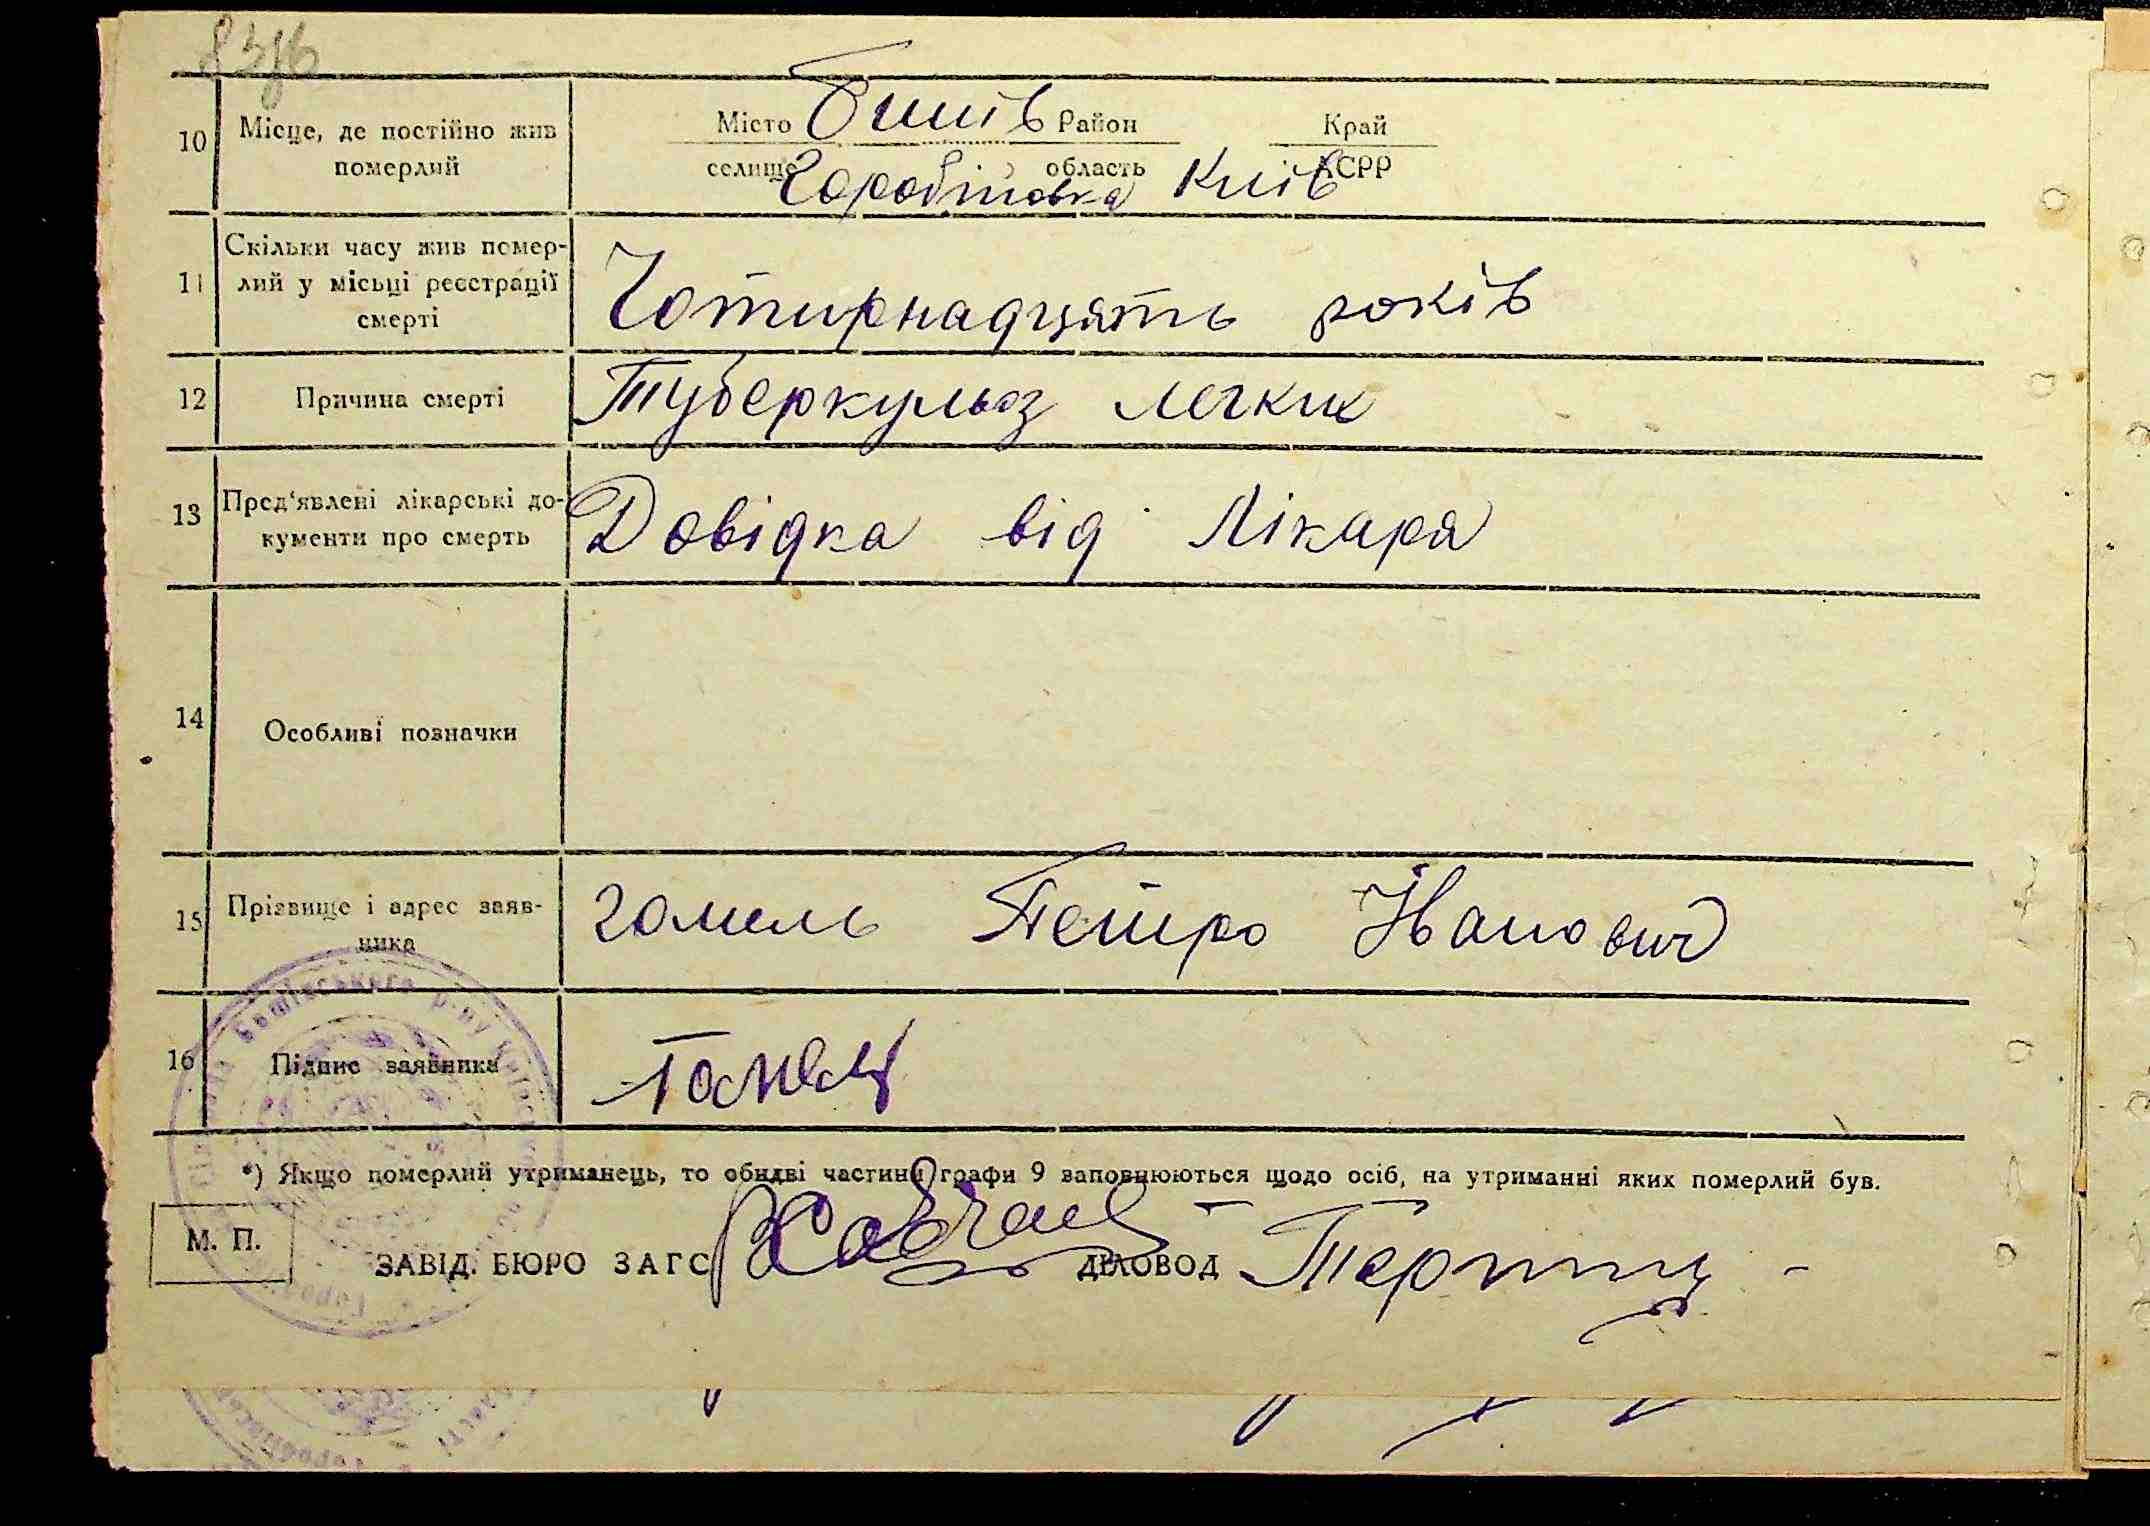 10 Місце, де постійно жив померлий
Місто Бишів Район Край
селище Горобіївка область Київ АСРР
11 Скільки часу жив помер-
лий у місьці реєстрації
смерті
Чотирнадцять років
12 Причина смерті Туберкульоз легких
13 Пред'явлені лікарські до-
кументи про смерть
Довідка від Лікаря
14 Особливі позначки
15 Прізвище і адрес заяв-
ника
Гомель Петро Іванович
16 Підпис заявника Гомель
*) Якщо померлий утриманець, то обидві частини графи 9 заповнюються щодо осіб, на утриманні яких померлий був.
М. П.
ЗАВІД. БЮРО ЗАГС ДІЛОВОД